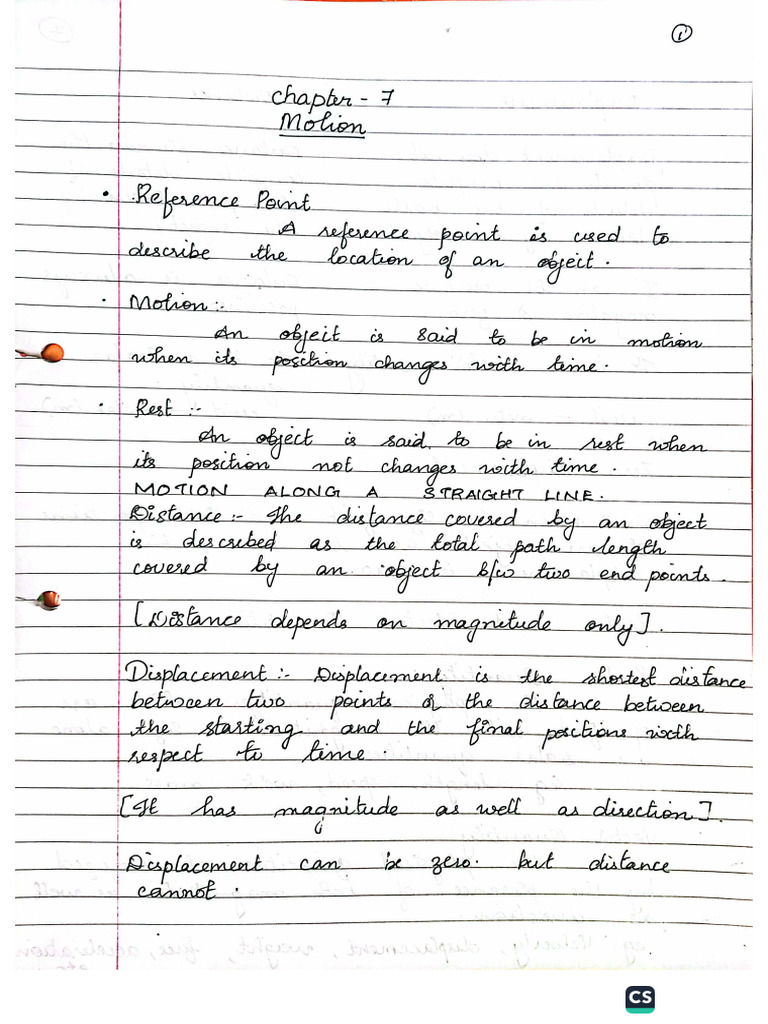 1
Chapter - 7
Motion
• Reference Point
A reference point is used to
describe the location of an object.
• Motion :-
An object is said to be in motion
when its position changes with time.
• Rest :-
An object is said to be in rest when
its position not changes with time.
MOTION ALONG A STRAIGHT LINE.
Distance :- The distance covered by an object
is described as the total path length
covered by an object b/w two end points.
[Distance depends on magnitude only].
Displacement :- Displacement is the shortest distance
between two points or the distance between
the starting and the final positions with
respect to time.
[It has magnitude as well as direction].
Displacement can be zero. but distance
cannot.
CS